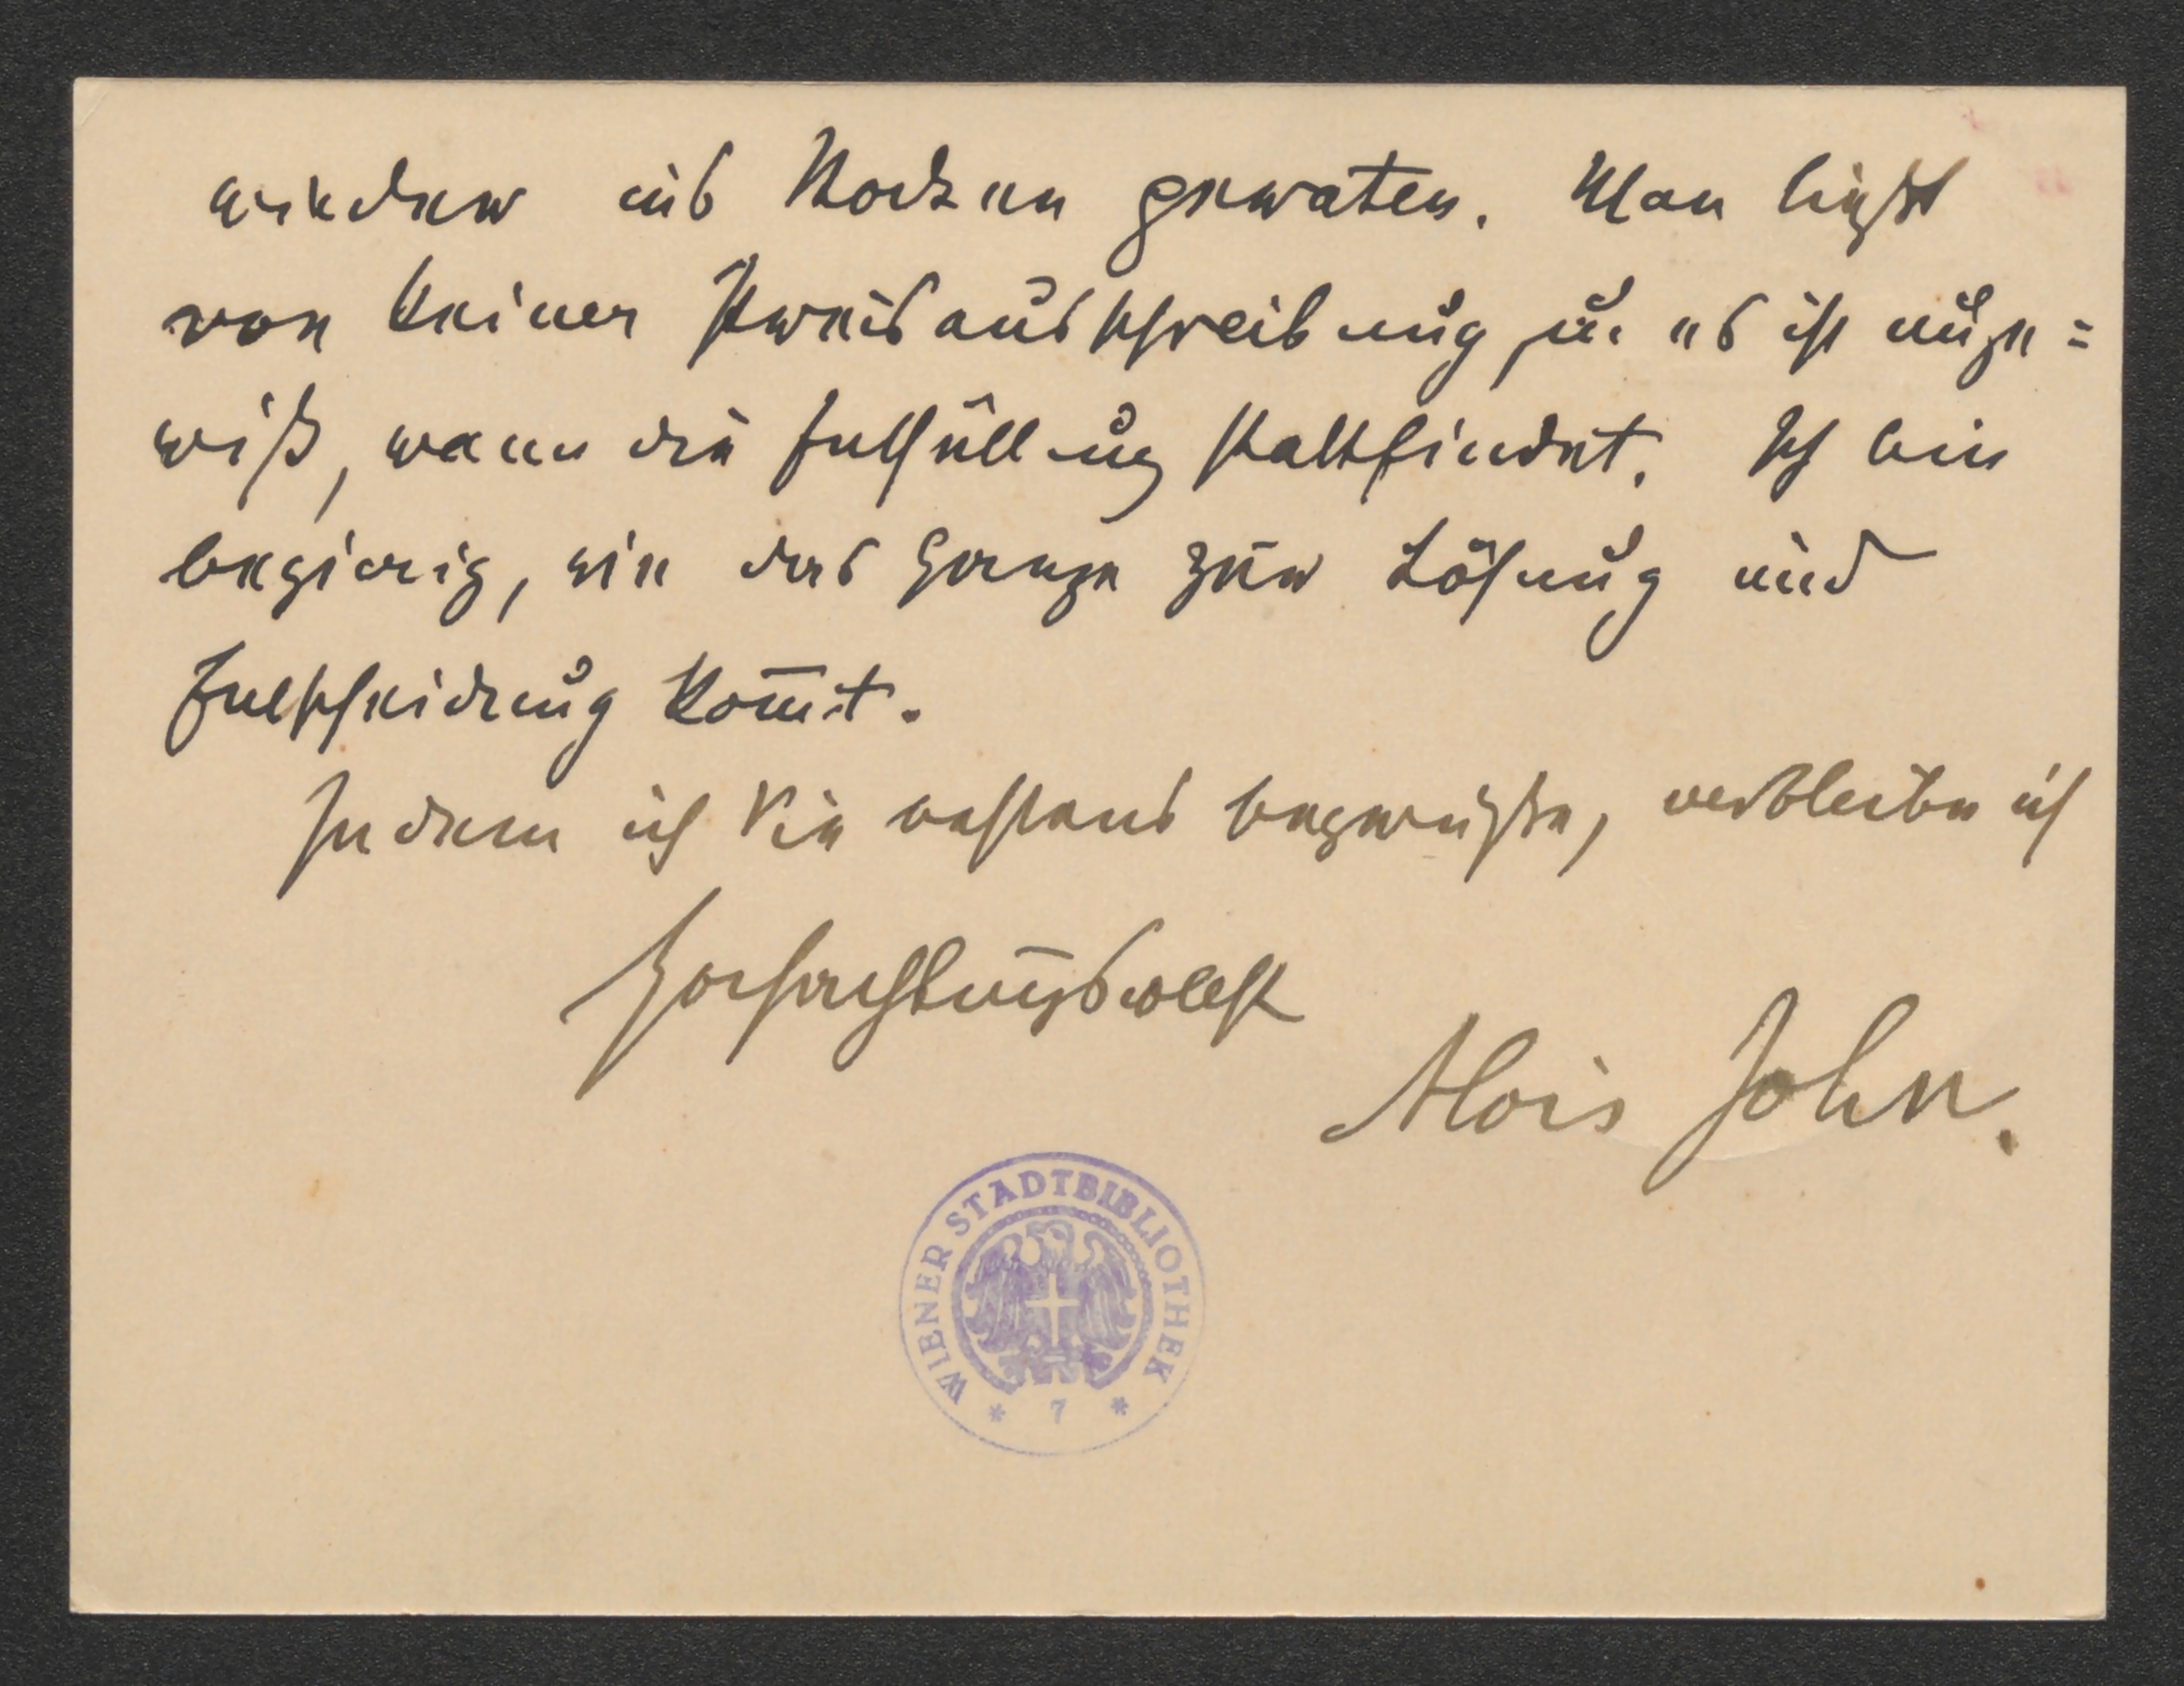 wieder ins Stocken geraten. Man liest
von keiner Preisausschreibung u. es ist unge=
wiß, wann die Enthüllung stattfindet. Ich bin
begierig, wie das Ganze zur Lösung und
Entscheidung kom̅t.
Indem ich Sie bestens begrüße, verbleibe ich
Hochachtungsvollst
Alois John.
WIENER STADTBIBLIOTHEK
* 7 *